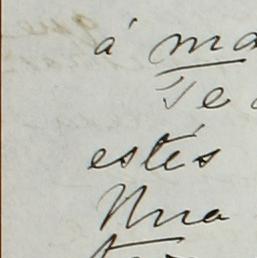 á ma
Te
estés
Una